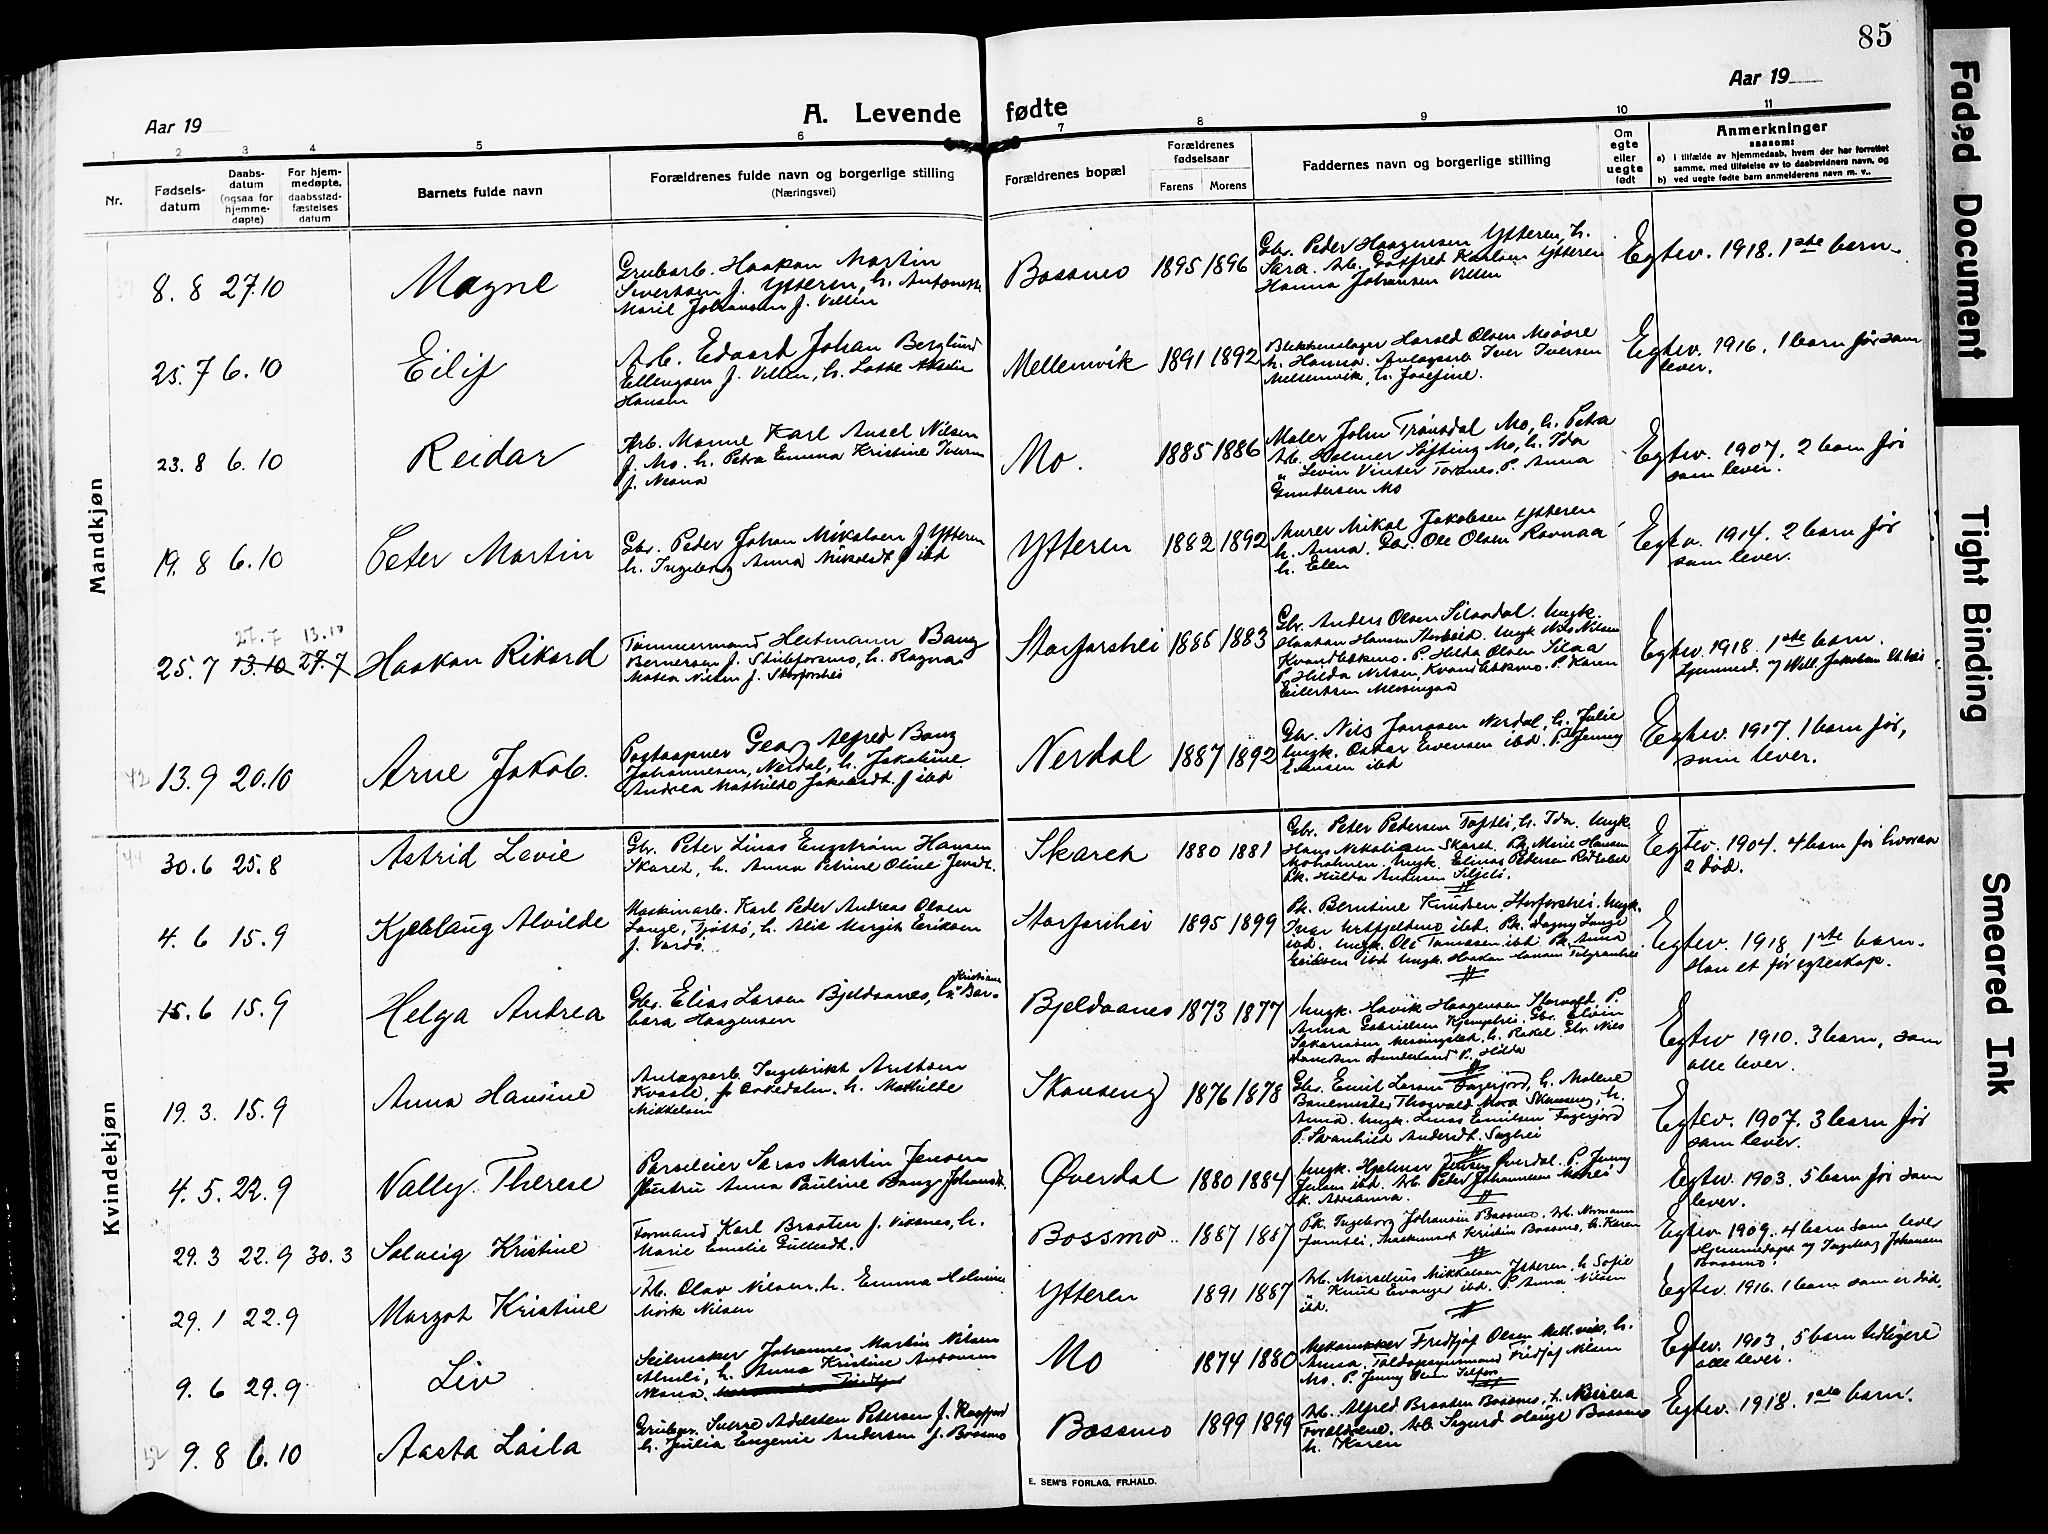 85
Aar 19
Aar 19
A. Levende fødte
1 2 3 4 5 6 7 8 9 10 11
Nr.
Fødsels-
datum
Daabs-
datum
(ogsaa for
hjemme-
døpte)
For hjem-
medøpte,
daabsstad-
fæstelses
datum
Barnets fulde navn
Forældrenes fulde navn og borgerlige stilling
(Næringsvei)
Forældrenes bopæl
Forældrenes
fødselsaar
Farens Morens
Faddernes navn og borgerlige stilling
Om
egte
eller
uegte
født
Anmerkninger
saasom:
a) i tilfælde av hjemmedaab, hvem der har forrettet
samme, med tilføielse av to daabsvidners navn, og
b) ved uegte fødte barn anmelderens navn m. v..
Mandkjøn
8. 8 27.10 Magne
Grubearb. Haakon Martin
Sivertsen f. Ytteren, h. Antonette
Marie Johansen f. Villen
Bossmo 1895 1896
Gbr. Peder Haagensen Ytteren, h.
Sara. Arb. Gotfred Karlsen Ytteren
Hanna Johansen Villen
Egtev. 1918. 1ste barn.
25.7 6.10 Eilif
Arb. Edvard Johan Berglund
Ellingsen f. Villen, h. Lotte
Hansen
Mellemvik 1891 1892
Blikkenslager Harald Olsen
h. Hanna. Anlægsarb. Iver Iversen
Mellemvik, h. Josefine.
Egtev. 1916. 1 barn før som
lever.
23. 8 6.10 Reidar
Arb. Karl Axsel Nilsen
f. Mo. h. Petra Emma Kristine Iversen
f. Nesna
Mo. 1885 1886
Maler John Mo, h. Petra
Arb. Søfting Mo, h. Ida
" Levin Vinter P. Anna
Gundersen Mo
Egtev. 1907. 2 barn før
som lever.
19. 8 6.10 Peter Martin
Gbr. Peder Johan Nikolsen f Ytteren
h. Ingeborg Anna Nikolsdt. f ibd
Ytteren 1882 1892
Murer Nikol Jakobsen Ytteren
h. Anna. Gbr. Ole Olsen
h. Ellen
Egtev. 1914. 2 barn før
som lever.
27.7 13.10
25.7 13.10 27.7 Haakon Rikard
Tømmermand Hertmann Bang
Berntsen f. Stubforsmo, h. Ragna
Nilsen f. Storforshei
Storforshei 1885 1883
Gbr. Anders Olsen Silaadal. Ungk.
Haakon Hansen Storforshei. Ungk. Nils Nilsen
P. Hilda Olsen Silaa
P. Hilda Nilsen, P. Karen
Eilertsen Messingaa
Egtev. 1918. 1ste barn.
Hjemmed. av Jakobsen
42 13.9 20.10 Arne Jakob.
Postaapner Georg Alfred Bang
Johannesen, Nerdal, h. Jakobine
Andrea Mathilde Jakobsdt. f ibd
Nerdal 1887 1892
Gbr. Nils Jonassen Nerdal, h. Julie
Ungk. Oskar Evensen ibd. P. Jenny
Evensen ibd
Egtev. 1917. 1 barn før,
som lever.
Kvindekjøn
30.6 25.8 Astrid Levie
Gbr. Peter Linus Engstrøm Hansen
Skaret, h. Anna Petrine Oline Jensdt.
Skaret 1880 1881
Gbr. Peter Pedersen h. Ida. Ungk.
Hans Nikolaisen Skaret. Pk. Marie Hansen
Moholmen. Ungk. Elinus Pedersen
Pk. Hulda Andersen
Egtev. 1904. 4 barn før hvorav
2 død.
4. 6 15.9 Kjellaug Alvilde
Maskinarb. Karl Peder Andreas Olsen
Lange, Tjøttø, h. Alis Margit Eriksen
f. Vardø.
Storforshei 1895 1899
Pk. Berntine Knudsen, Storforshei, Ungk.
Ivar ibd. Pk. Dagny Lange
ibd. Ungk. Ole Tomassen ibd. Pk. Anna
Eriksen ibd Ungk. Haakon
Egtev. 1918. 1ste barn.
Han et før egteskap.
15.6 15.9 Helga Andrea
Gbr. Elias Larsen Bjeldaanes, h. Kristiane Bar-
bara Haagensen
Bjeldaanes 1873 1877
Ungk. Havik Haagensen Storvold, P.
Anna Gabrielsen Gbr.
h. Rakel. Gbr. Nils
Dunderland P. Hilda
Egtev 1910. 3 barn, som
alle lever.
19. 3. 15. 9 Anna Hansine
Anlægsarb. Ingebrikt Arntsen
Kvaale, f. Orkedalen, h. Mathilde
Mikkelsen
Skanseng 1876 1878
Gbr. Emil Larsen Fagerjord, h. Malene
Banemester Thorvald Skanseng, h.
Anna. Ungk. Linus Emilsen Fagerjord
P. Svanhild Andersdt.
Egtev. 1907. 3 barn før
som lever.
4. 5. 22. 9 Vally Therese
Parseleier Martin Jensen
Hustru Anna Pauline Bang Johansdt.
Øverdal 1880 1884
Ungk. Hjalmar Jensen Øverdal. P. Jenny
Jensen ibd. Arb. Peter Johannesen
h. Abrianna.
Egtev. 1903. 5 barn før som
lever.
29. 3 22.9 30.3 Solveig Kristine
Formand Karl Braaten f. Viksnes, h.
Marie Emelie
Bossmo. 1887 1887
Pk. Ingeborg Johansen Bossmo, Arb. Normann
Maskinmest Kristin Bossmo, h. Karen
Egtev. 1909. 4 barn som lever
Hjemmedøpt av Ingeborg Johansen
Bossmo.
29. 1 22.9 Margot Kristine
Arb. Olav Nilsen, h. Emma
Mørk Nilsen
Ytteren 1891 1887
Arb. Marselius Mikkelsen Ytteren, h. Sofie
" Knut ibd. P. Anna Nilsen
ibd.
Egtev. 1916. 1 barn som er død.
9. 6 29.9 Liv
Seilmaker Johannes Martin Nilsen
h. Anna Kristine
Nesna.
Mo 1874 1880
Fridtjof Olsen h.
Anna. Fridtjof Nilsen
Mo. P. Jenny Olsen
Egtev. 1903. 5 barn tidligere
alle lever.
52 9. 8 6. 10 Aasta Laila
Sverre Adelsten Petersen f.
h. Julia Eugenie Andersen f. Bossmo
Bossmo 1899 1899
Arb. Alfred Braaten Bossmo, h.
Forældrene. Arb. Sigurd Hauge Bossmo
h. Karen
Egtev. 1918. 1ste barn.
E. SEM'S FORLAG, FR.HALD.
Faded Document
Tight Binding
Smeared Ink